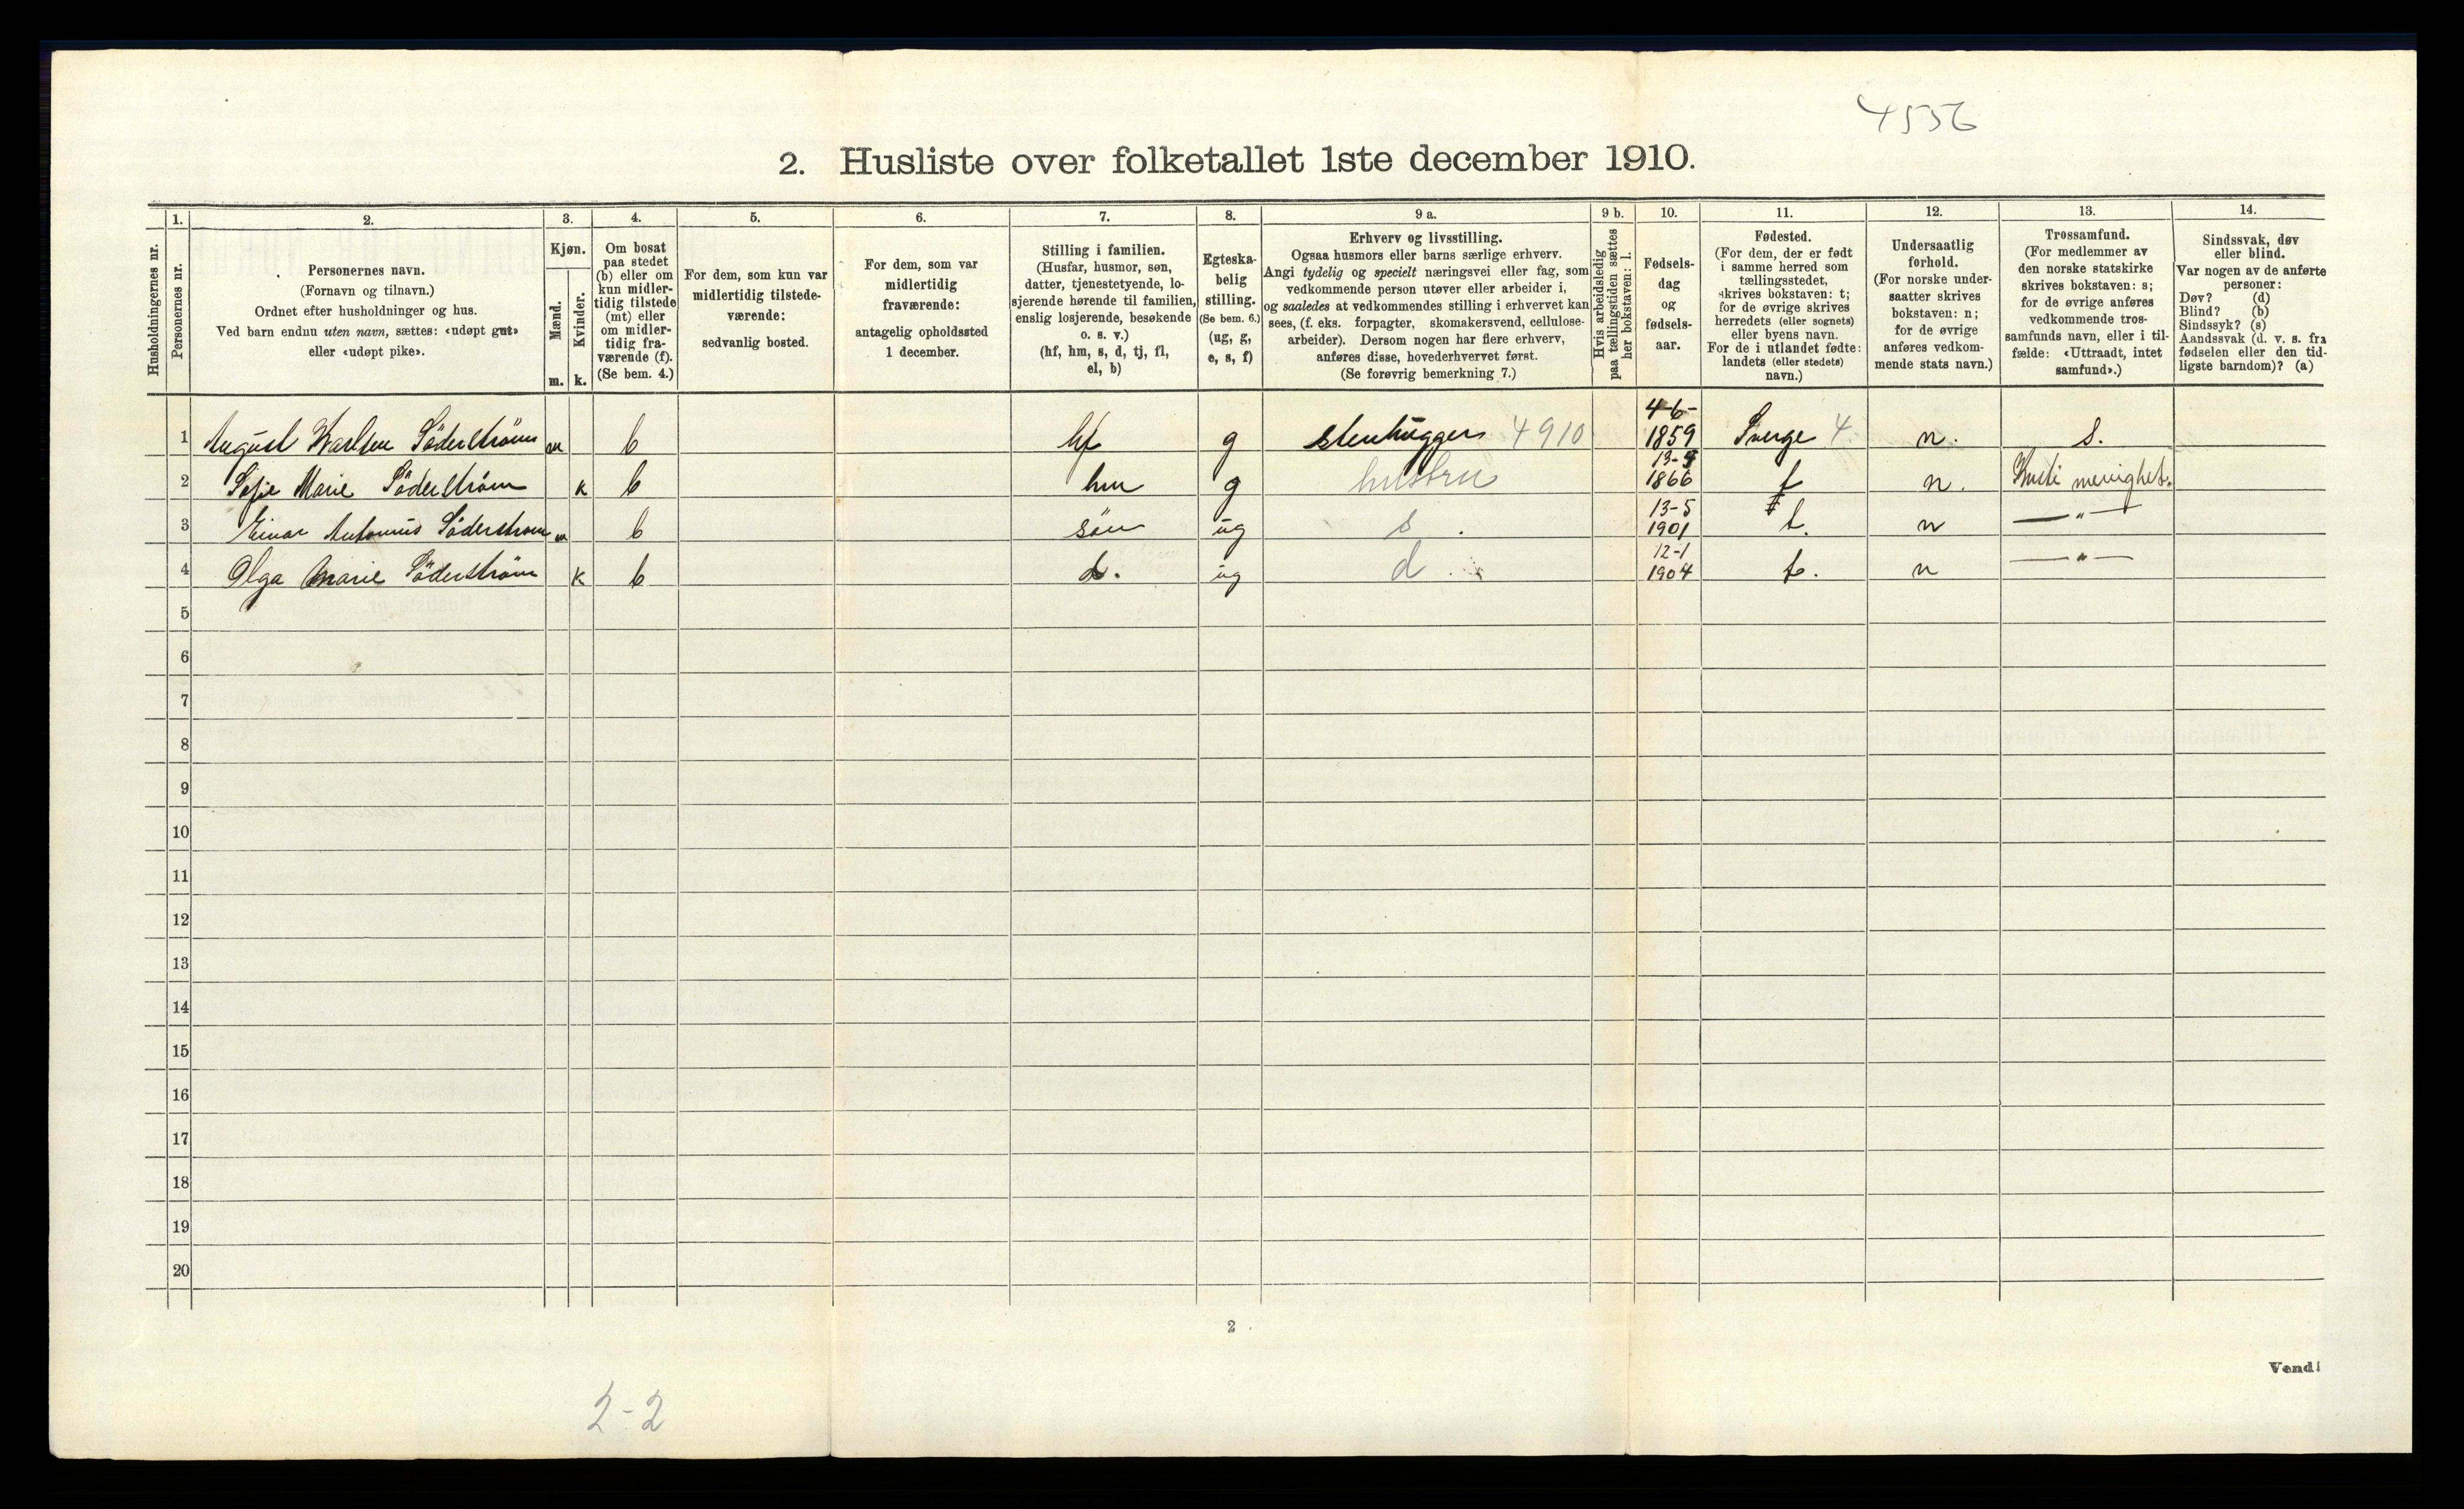 4556
2. Husliste over folketallet 1ste december 1910.
Husholdningernes nr.
1.
Personernes nr.
2.
Personernes navn.
(Fornavn og tilnavn.)
Ordnet efter husholdninger og hus.
Ved barn endnu uten navn, sættes: «udøpt gut»
eller «udøpt pike».
3.
Kjøn.
Mænd.
Kvinder.
m. k.
4.
Om bosat
paa stedet
(b) eller om
kun midler-
tidig tilstede
(mt) eller
om midler-
tidig fra-
værende (f).
(Se bem. 4.)
5.
For dem, som kun var
midlertidig tilstede-
værende:
sedvanlig bosted.
6.
For dem, som var
midlertidig
fraværende:
antagelig opholdssted
1 december.
7.
Stilling i familien.
(Husfar, husmor, søn,
datter, tjenestetyende, lo-
sjerende hørende til familien,
enslig losjerende, besøkende
o. s. v.)
(hf, hm, s, d, tj, fl,
el, b)
8.
Egteska-
belig
stilling.
(Se bem. 6.)
(ug, g,
e, s, f)
9 a.
Erhverv og livsstilling.
Ogsaa husmors eller barns særlige erhverv.
Angi tydelig og specielt næringsvei eller fag, som
vedkommende person utøver eller arbeider i,
og saaledes at vedkommendes stilling i erhvervet kan
sees, (f. eks. forpagter, skomakersvend, cellulose-
arbeider). Dersom nogen har flere erhverv,
anføres disse, hovederhvervet først.
(Se forøvrig bemerkning 7.)
9 b.
Hvis arbeidsledig
paa tællingstiden sættes
her bokstaven: l.
10.
Fødsels-
dag
og
fødsels-
aar.
11.
Fødested.
(For dem, der er født
i samme herred som
tællingsstedet,
skrives bokstaven: t;
for de øvrige skrives
herredets (eller sognets)
eller byens navn.
For de i utlandet fødte:
landets (eller stedets)
navn.)
12.
Undersaatlig
forhold.
(For norske under-
saatter skrives
bokstaven: n;
for de øvrige
anføres vedkom-
mende stats navn.)
13.
Trossamfund.
(For medlemmer av
den norske statskirke
skrives bokstaven: s;
for de øvrige anføres
vedkommende tros-
samfunds navn, eller i til-
fælde: «Uttraadt, intet
samfund».)
14.
Sindssvak, døv
eller blind.
Var nogen av de anførte
personer:
Døv? (d)
Blind? (b)
Sindssyk? (s)
Aandssvak (d. v. s. fra
fødselen eller den tid-
ligste barndom)? (a)
1 August Karlsen Söderström m b hf g stenhugger 4910 4-6-1859 Sverge 4. n. S.
2 Sofie Marie Söderström k b hm g hustru 13-9 1866 t n. menighet.
3 Einar Antonius Söderstrøm m b søn ug s. 13-5 1901 t. n — " —
4 Olga Marie Söderstrøm k b d. ug d 12-1 1904 t. n — " —
5
6
7
8
9
10
11
12
13
14
15
16
17
18
19
20
2
Vend!
2-2